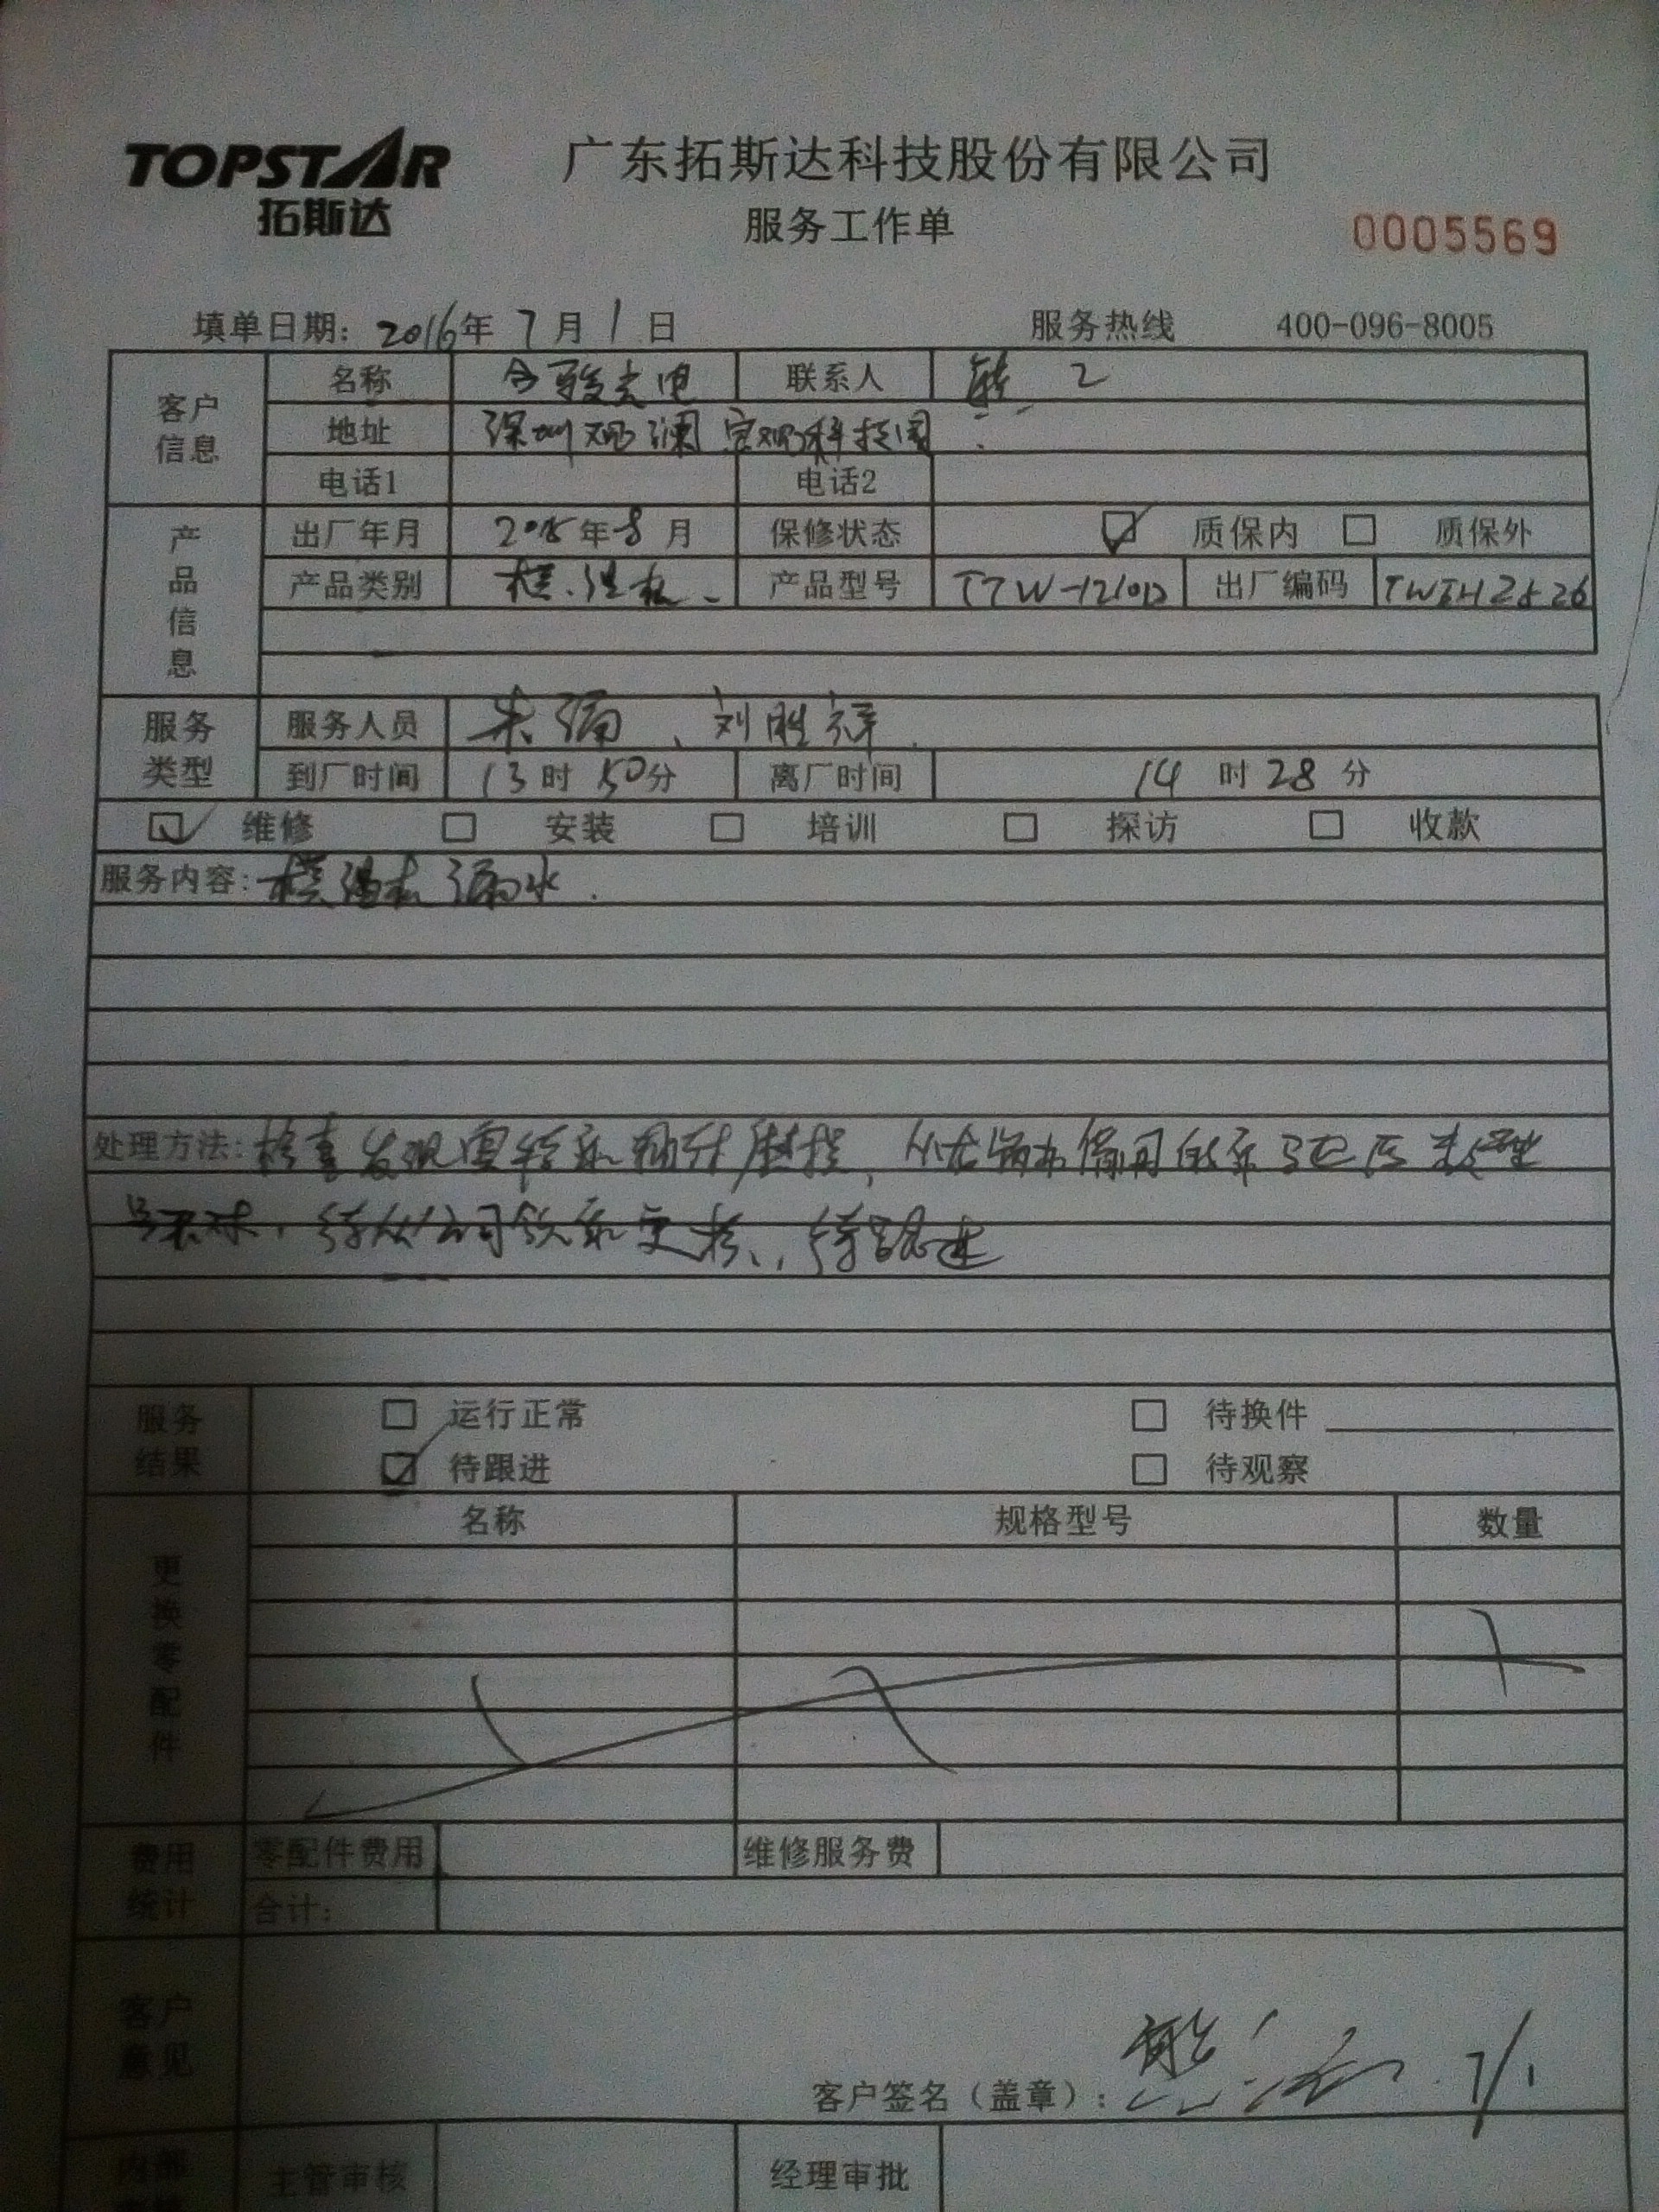 TOPSTAR
拓斯达
广东拓斯达科技股份有限公司
服务工作单
0005569
填单日期: 2016年 7月 1日 服务热线 400-096-8005
客户信息
名称 联系人
地址 深圳观澜 科技园
电话1 电话2
产品信息
出厂年月 2015年8月 保修状态 质保内 质保外
产品类别 模温机 产品型号 出厂编码
服务类型
服务人员 朱 、刘胜祥
到厂时间 13时50分 离厂时间 14时28分
维修 安装 培训 探访 收款
服务内容: 模温机漏水.
处理方法: 检查发现 泵轴 磨损,
待从公司 泵更换, 待跟进
服务结果
运行正常 待换件
待跟进 待观察
更换零配件
名称 规格型号 数量
费用统计
零配件费用 维修服务费
合计:
客户意见
客户签名（盖章）: 7/1
内部
主管审核 经理审批